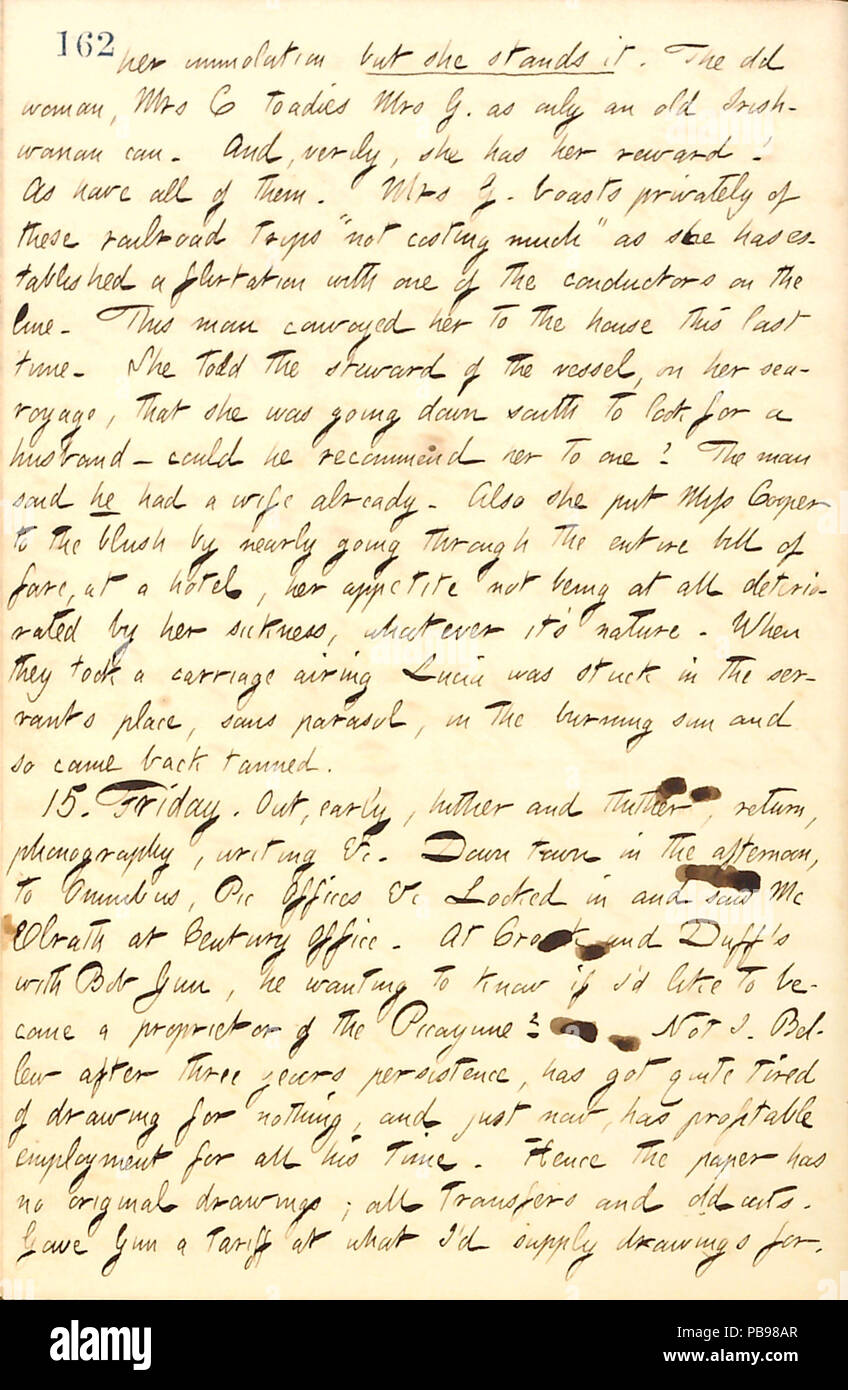 162
her immolation but she stands it. The old
woman, Mrs C toadies Mrs G. as only an old Irish-
woman can. And, verily, she has her reward!
As have all of them. Mrs G. boasts privately of
these railroad trips "not costing much" as she has es-
tablished a flirtation with one of the conductors on the
line. This man convoyed her to the house this last
time. She told the steward of the vessel, on her sea-
voyage, that she was going down south to look for a
husband — could he recommend her to one? The man
said he had a wife already. Also she put Miss Cooper
to the blush by nearly going through the entire bill of
fare, at a hotel, her appetite not being at all deterio-
rated by her sickness, whatever it's nature. When
they took a carriage airing Lucia was stuck in the ser-
vants place, sans parasol, in the burning sun and
so came back tanned.
15. Friday. Out, early, hither and thither, return,
phonography, writing &c. Down town in the afternoon,
to Omnibus, Pic Offices &c Looked in and saw Mc
Elrath at Century Office. At Crook and Duff's
with Bob Gun, he wanting to know if I'd like to be-
come a proprietor of the Picayune? Not I. Bel-
lew after three years persistence, has got quite tired
of drawing for nothing, and just now, has profitable
employment for all his time. Hence the paper has
no original drawings; all transfers and old cuts.
Gave Gun a tariff at what I'd supply drawings for.
alamy
Image ID: PB98AR
www.alamy.com